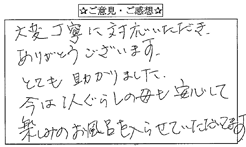 ☆ご意見・ご感想☆
大変丁寧に対応いただき、
ありがとうございます。
とても助かりました。
今は1人ぐらしの母も安心して
楽しみのお風呂も入らせていただいてます